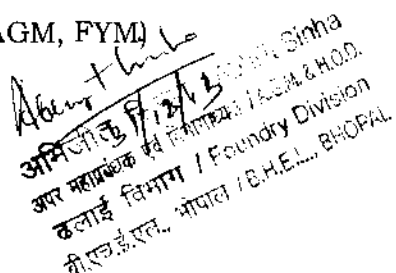 AGM, FYM)
अभिजीत Sinha
अपर महाप्रबंधक एवं विभागाध्यक्ष / A.G.M. & H.O.D.
ढलाई विभाग / Foundry Division
बी.एच.ई.एल., भोपाल / B.H.E.L., BHOPAL